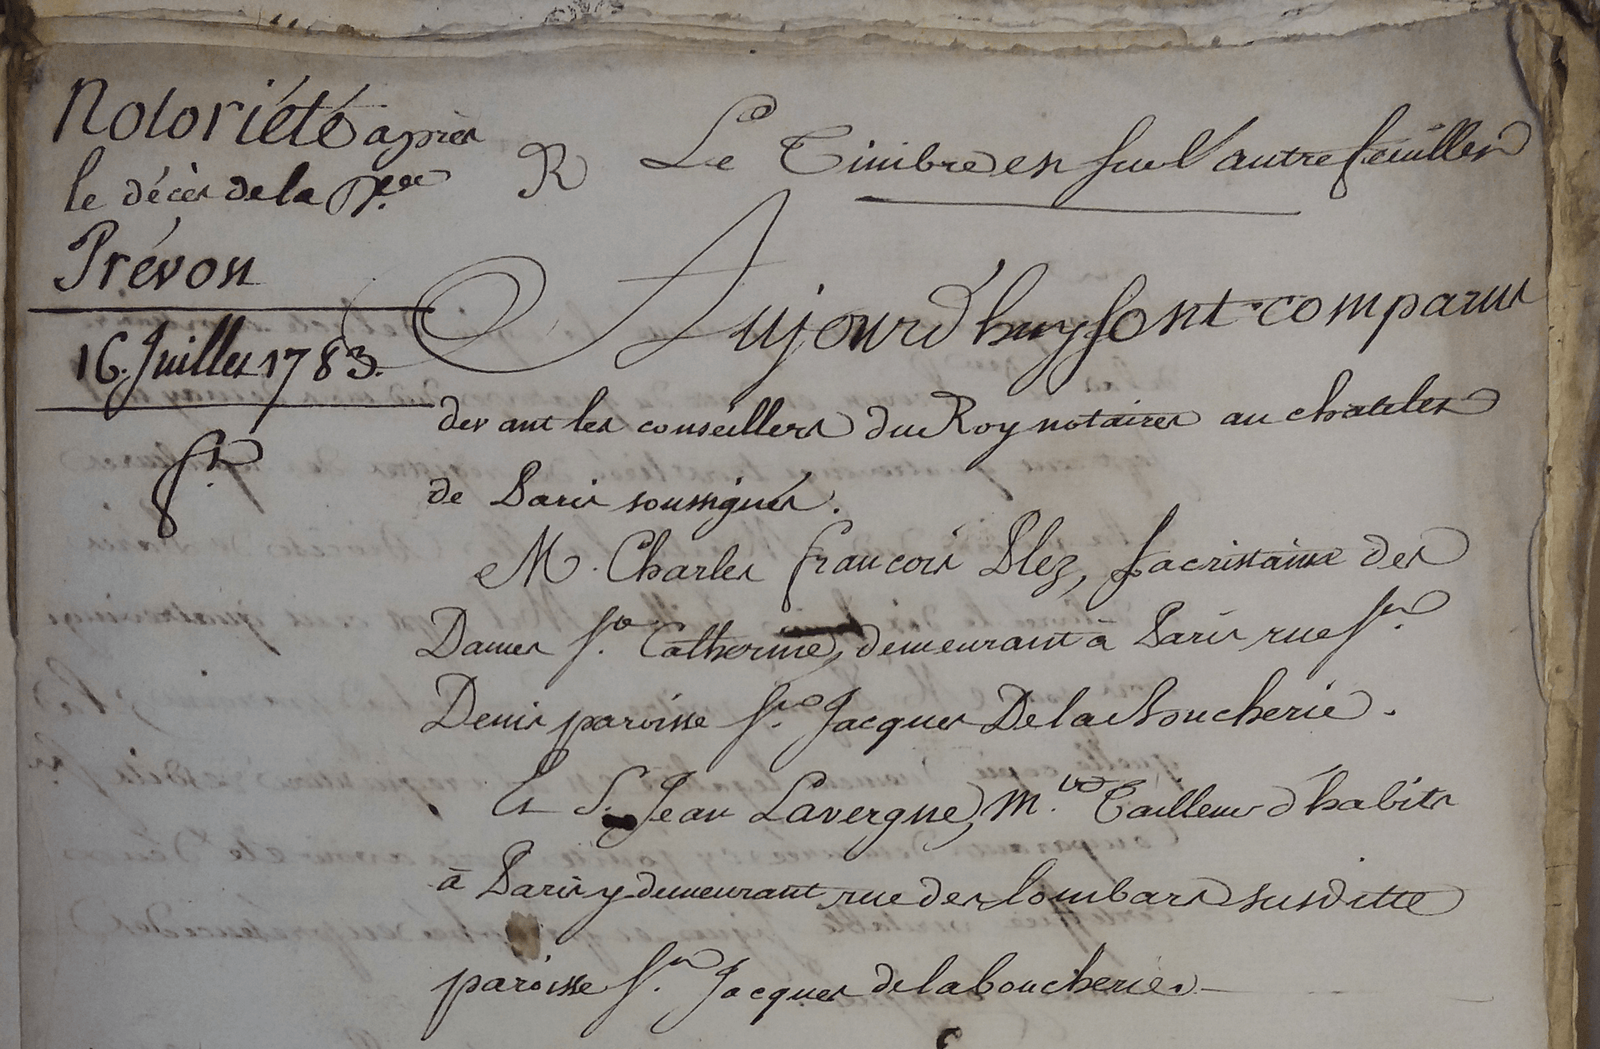 Notoriété après
le décès de la D.elle
Prévost
16. Juillet 1783.
R Le Timbre est sur l'autre feuillet
Aujourd'huy sont comparus
devant les conseillers du Roy notaires au chatelet
de Paris soussignés.
M. Charles françois Blez, Sacristain des
Dames S.te Catherine, demeurant à Paris rue S.t
Denis paroisse S.t Jacques De la Boucherie.
Et S. Jean Lavergne, M.tre Tailleur d'habits
à Paris y demeurant rue des lombars susditte
paroisse S.t Jacques de la boucherie.